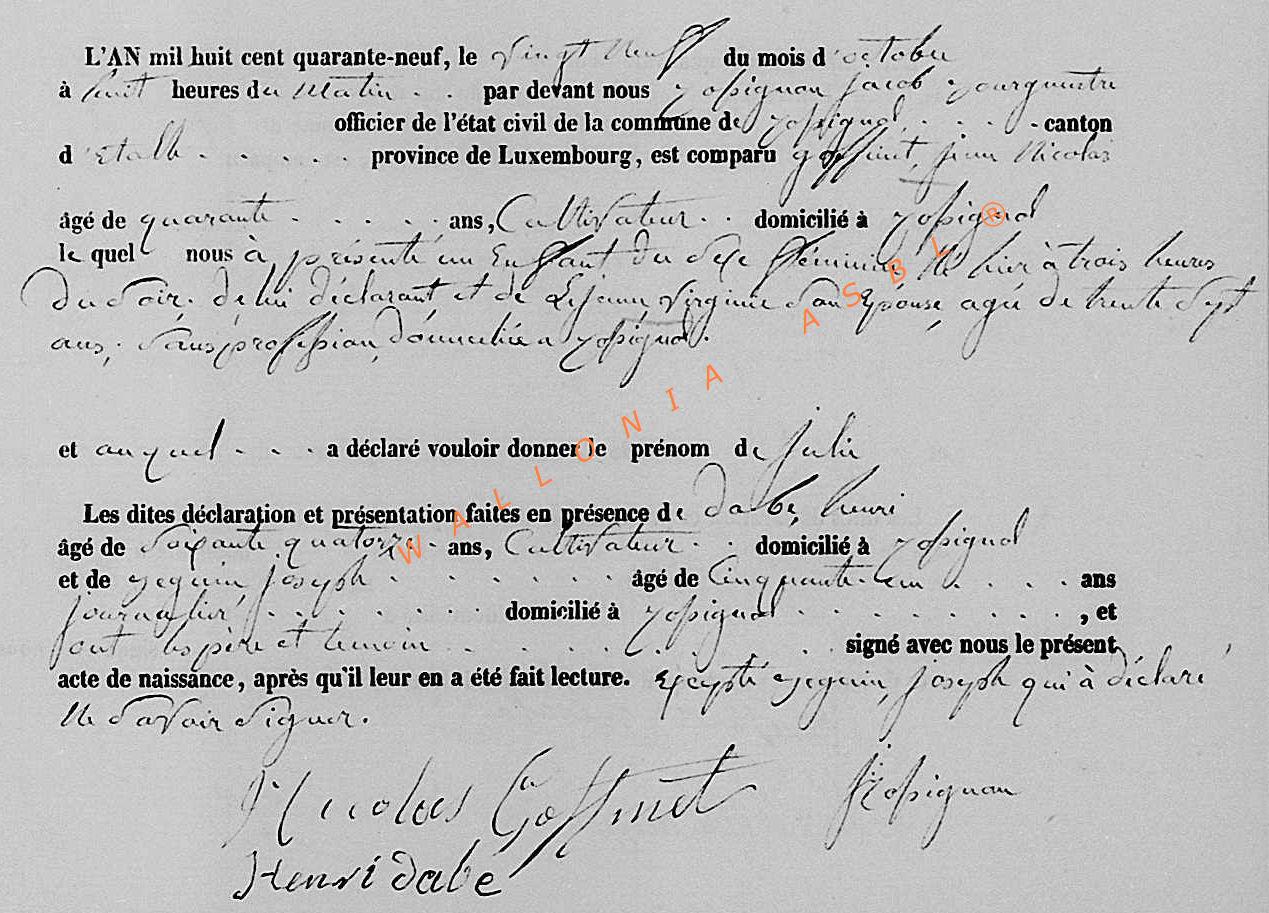 L'AN mil huit cent quarante-neuf, le vingt neuf du mois d'octobre
à huit heures du matin . . par devant nous Rossignon Jacob Bourgmestre
officier de l'état civil de la commune de Rossignol . . . . canton
d'Etalle . . . . . province de Luxembourg, est comparu goffinet, jean Nicolas
âgé de quarante . . . . . ans, Cultivateur . . domicilié à Rossignol
le quel nous à présenté un Enfant du Sexe féminin né hier à trois heures
du Soir. de lui déclarant et de Lejeune, Virginie Son Epouse, agée de trente Sept
ans, Sans profession, domiciliée a Rossignol.
et auquel . . . a déclaré vouloir donner le prénom de Julie
Les dites déclaration et présentation faites en présence de dabe, henri
âgé de Soixante quatorze . ans, Cultivateur . . domicilié à Rossignol
et de Joseph . . . . . . . âgé de Cinquante un . . . . ans
journalier . . . . . . . domicilié à Rossignol . . . . . . . . . , et
ont les père et temoin . . . . . . . . . . signé avec nous le présent
acte de naissance, après qu'il leur en a été fait lecture. Excepté Joseph qui à déclaré
Ne Savoir Signer.
Nicolas Goffinet Rossignon
Henri dabé
WALLONIA ASBL ®